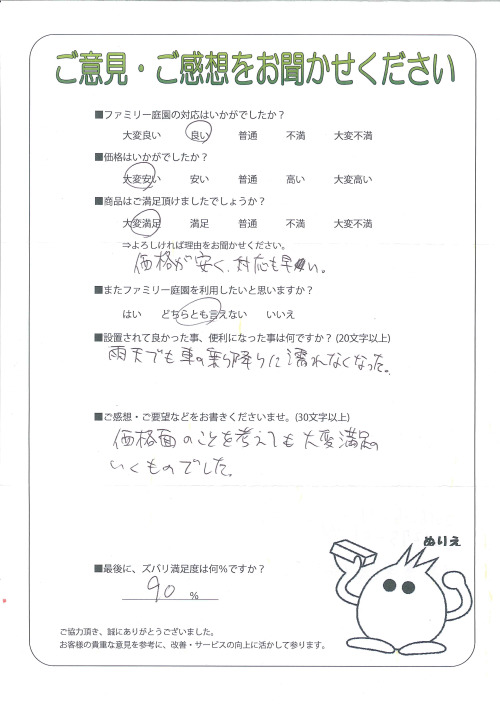 ご意見・ご感想をお聞かせください
■ファミリー庭園の対応はいかがでしたか？
大変良い 良い 普通 不満 大変不満
■価格はいかがでしたか？
大変安い 安い 普通 高い 大変高い
■商品はご満足頂けましたでしょうか？
大変満足 満足 普通 不満 大変不満
⇒よろしければ理由をお聞かせください。
価格が安く、対応も早い。
■またファミリー庭園を利用したいと思いますか？
はい どちらとも言えない いいえ
■設置されて良かった事、便利になった事は何ですか？(20文字以上)
雨天でも車の乗り降りに濡れなくなった。
■ご感想・ご要望などをお書きくださいませ。(30文字以上)
価格面のことを考えても大変満足の
いくものでした。
ぬりえ
■最後に、ズバリ満足度は何％ですか？
90 ％
ご協力頂き、誠にありがとうございました。
お客様の貴重な意見を参考に、改善・サービスの向上に活かして参ります。